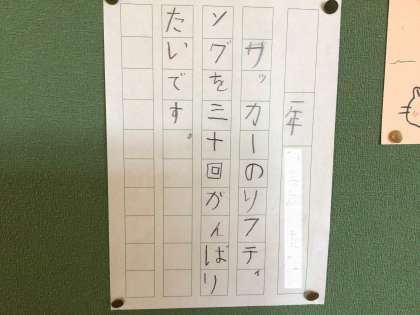 一年
サッカーのリフティ
ングを三十回がんばり
たいです。